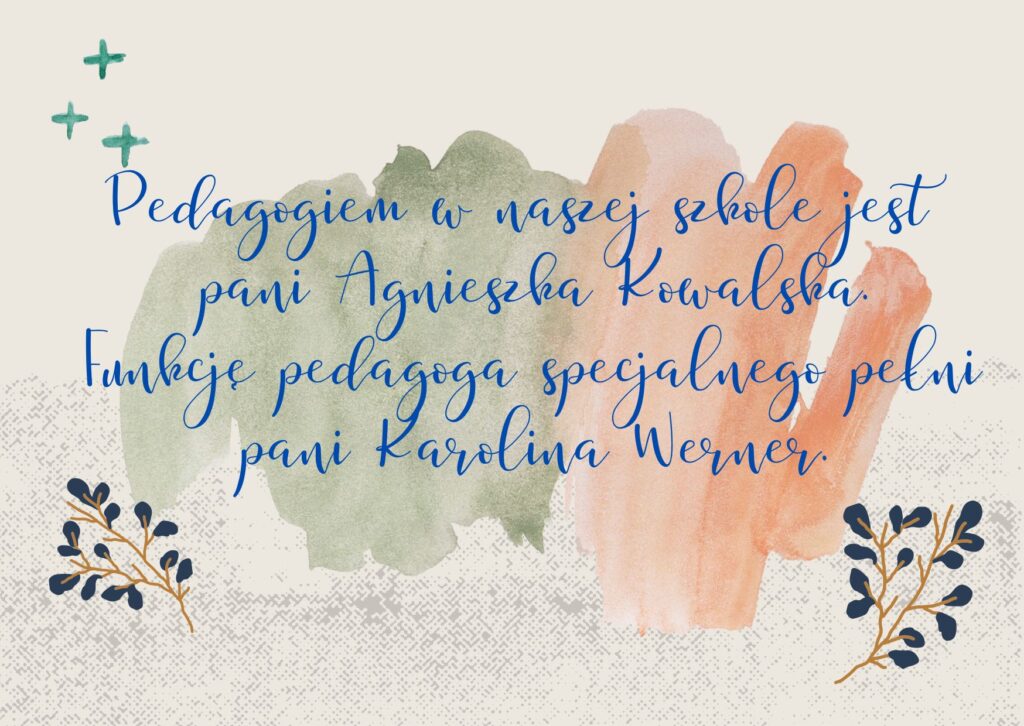 Pedagogiem w naszej szkole jest
pani Agnieszka Kowalska.
Funkcję pedagoga specjalnego pełni
pani Karolina Werner.